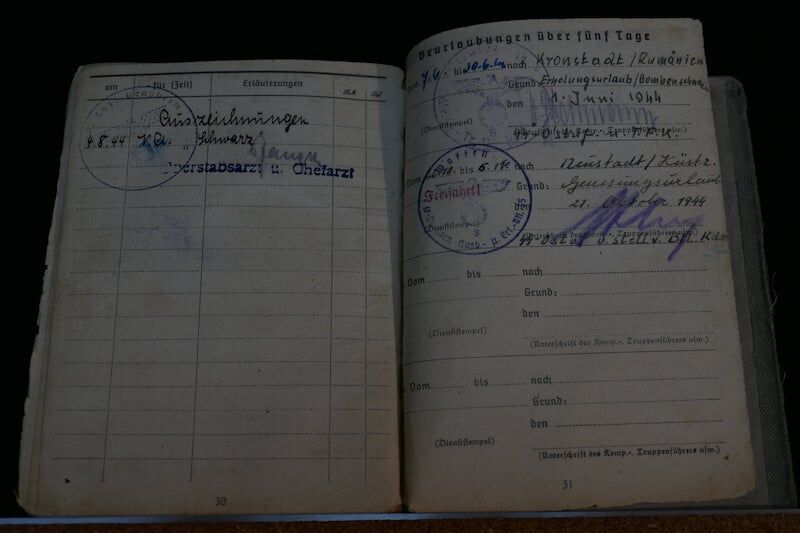 am für (Zeit) Erläuterungen
Auszeichnungen
4.8.44 V.A. „ Schwarz
Oberstabsarzt u. Chefarzt
50
Beurlaubungen über fünf Tage
vom 7.6. bis 30.6. nach Kronstadt/Rumänien
Grund Erholungsurlaub/Bombenschaden
den 1. Juni 1944
(Dienststempel)
Komp.-, Truppenführers usw.)
Vom bis nach Neustadt/Küstr.
Freifahrt!
Grund: Genesungsurlaub
21. Oktober 1944
(Unterschrift des Komp.-, Truppenführers usw.)
Vom bis nach
Grund:
den
(Dienststempel)
(Unterschrift des Komp.-, Truppenführers usw.)
Vom bis nach
Grund:
den
(Dienststempel)
(Unterschrift des Komp.-, Truppenführers usw.)
51